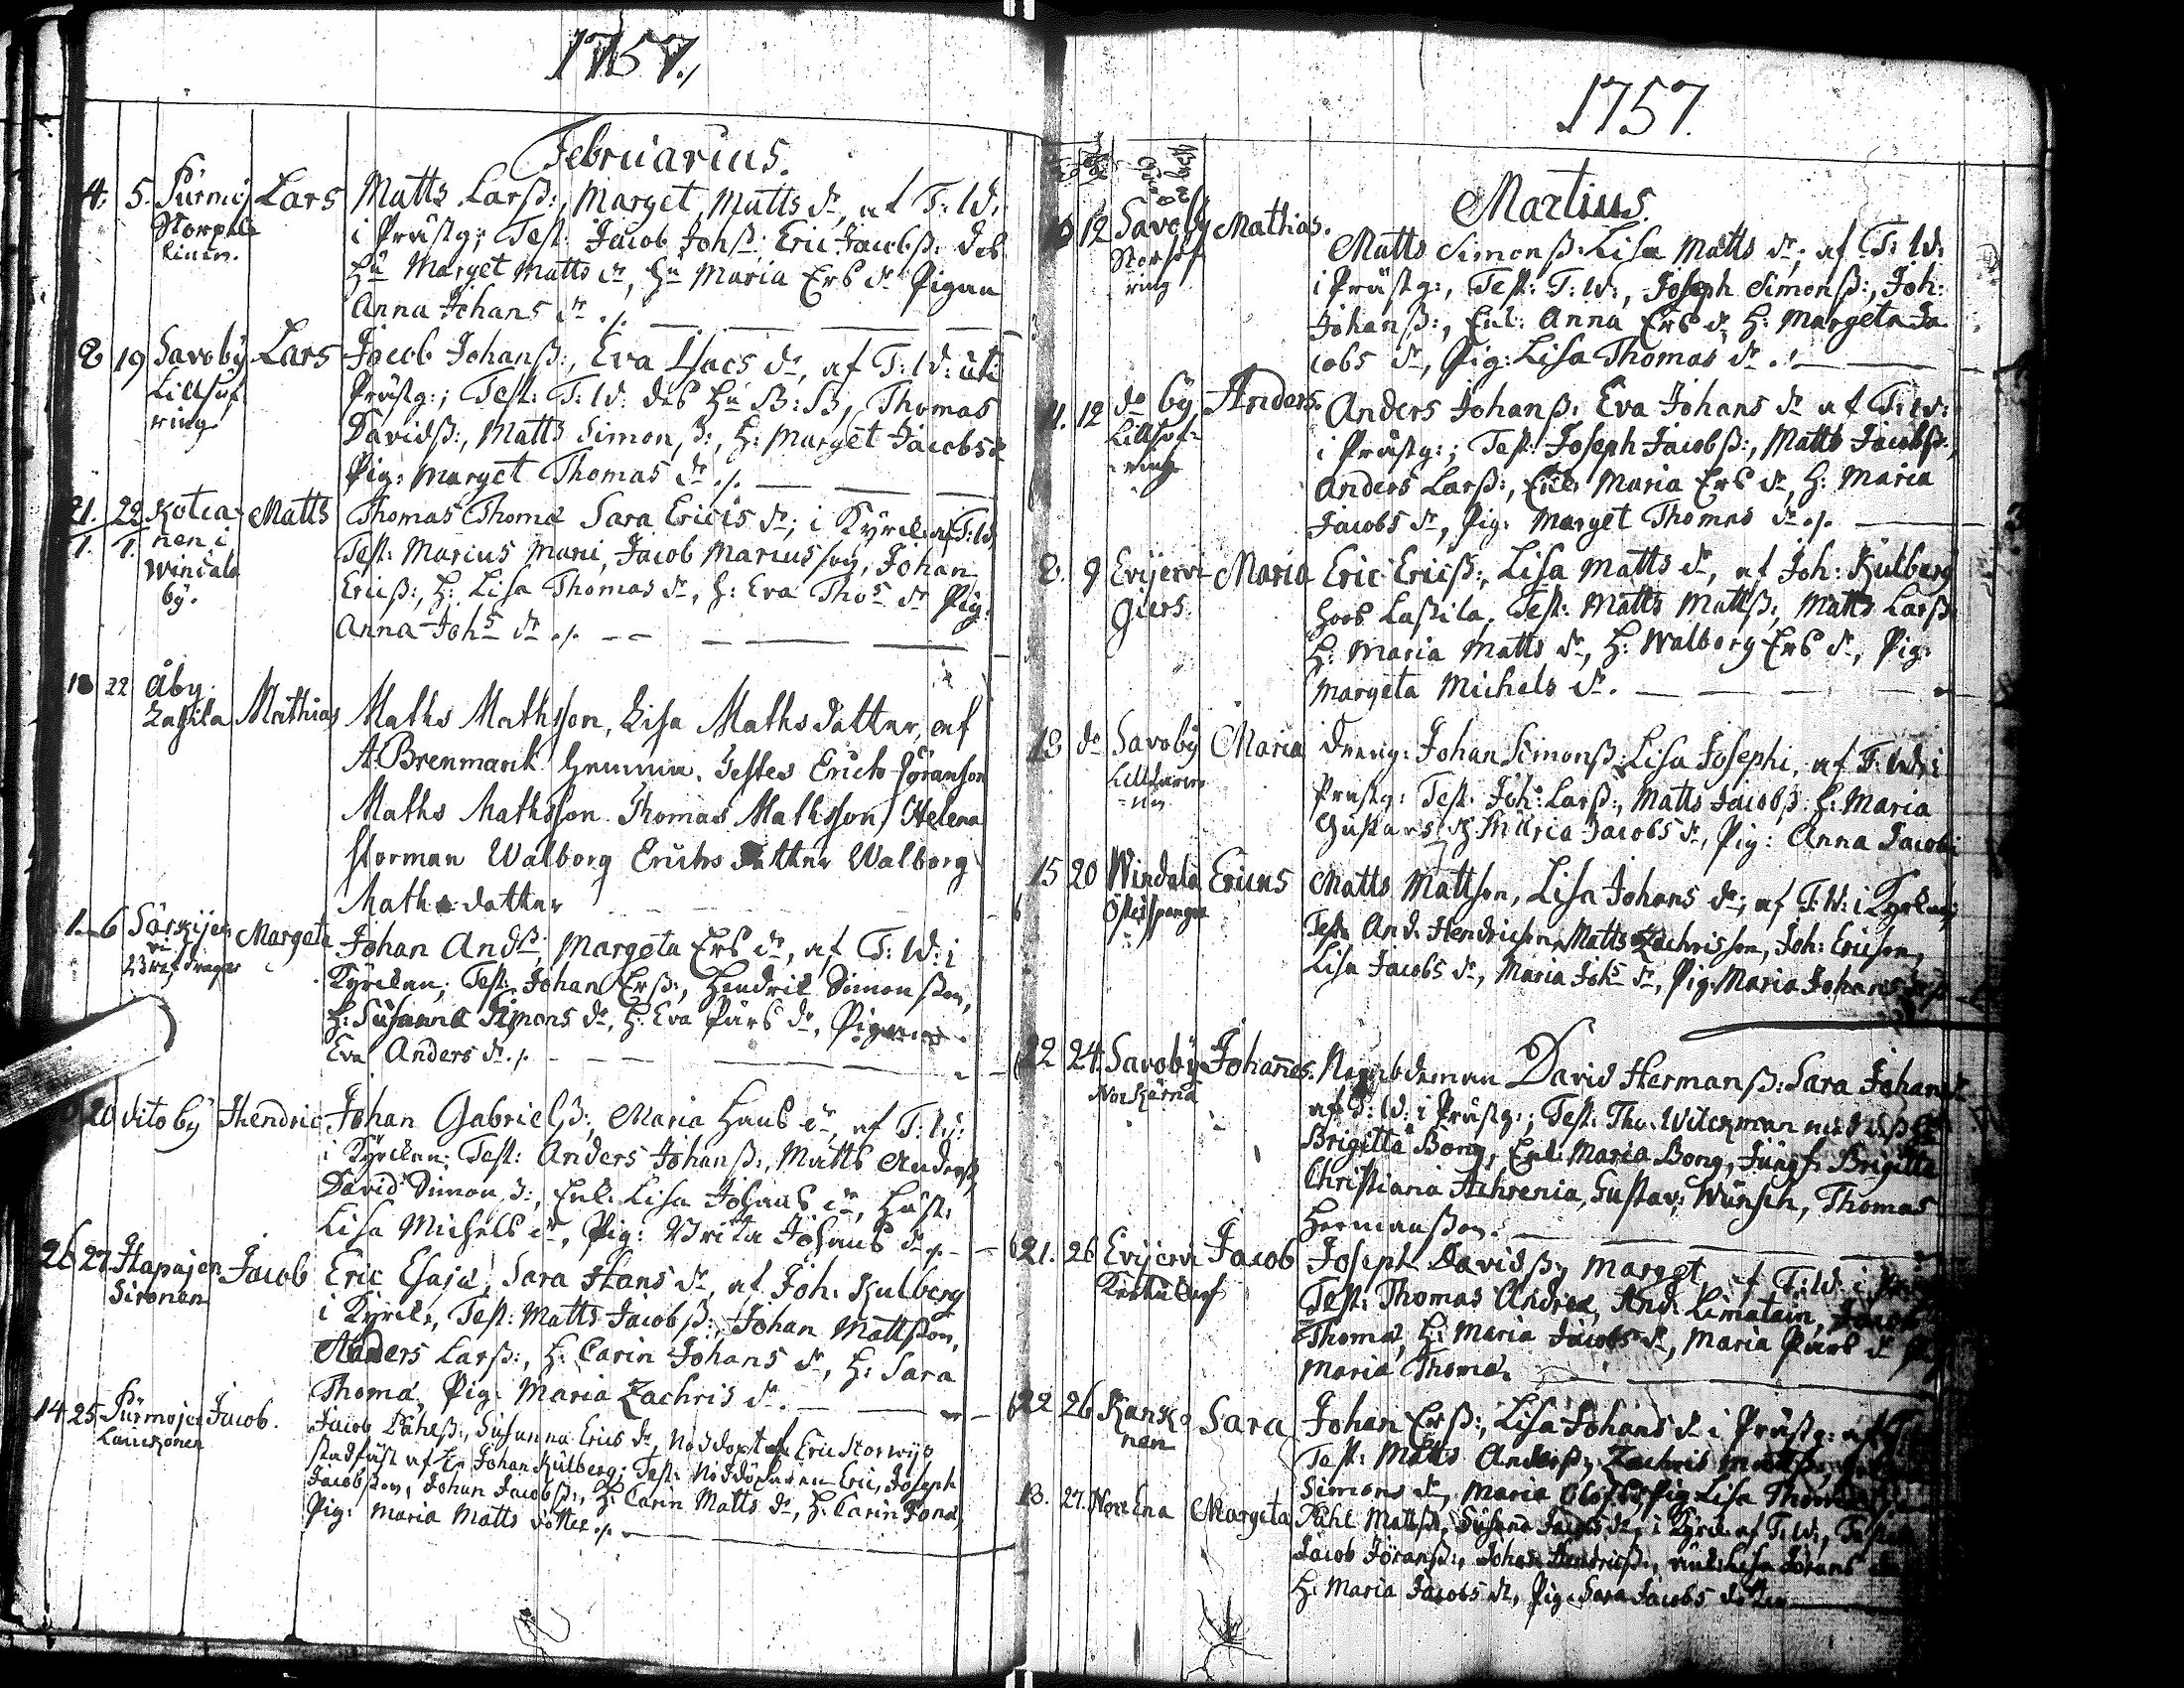 1757.
Februarius.
4. 5. Pürmoj Lars Matts Larß:, Marget Matts dr, af T: W:
i Prästg: Test: Jacob Johß: Eric Jacobß: Deß
Hu Marget Matts dr, Hu Maria Ers dr Pigan
Anna Johans dr ./.
8 19 Savoby Lars Jacob Johanß:, Eva Isacs dr, af T: W: uti
Lillsüf
ring
Prästg:; Test: T: W: deß Hu B: B, Thomas
Davidß:, Matts Simonß:, H: Marget Jacobs dr
Pig: Marget Thomas dr ./.
21. 22 Matts Thomas Thomæ Sara Ericis dr; i Kyrck af T: W.
1. 1. nen i
Windala
by.
Test: Marius Mari, Jacob Marius son, Johan
Ericß:, H: Lisa Thomas dr, H: Eva Thos dr Pig:
Anna Johs dr ./.
18 22 Åby Mathias Maths Mathsson, Lisa Maths dotter, af
A: Brenmark Testes Erich Jöranson
Maths Mathsson Thomas Mathsson, Helena
Storman Walborg Erichs dotter Walborg
Maths dotter
1. 6 Margeta Johan Andß; Margeta Ers dr, af T: W: i
Kyrckan; Test: Johan Erß:, Hendrik Simonßon,
H: Susanna Simons dr, H: Eva Pärs dr, Pigan
Eva Anders dr ./.
20 dito by Hendric Johan Gabrielß:, Maria Hans dr, af T: W:
i Kyrckan; Test: Anders Johanß:, Matts Andersß,
David Simonß:, Enl: Lisa Johans dr, Hust:
Lisa Michels dr, Pig: Brita Johans dr ./.
26 27 Hapajer Jacob Eric Esajæ, Sara Hans dr, af Joh: Kulberg
Sironen
i Kyrck:, Test: Matts Jacobß:, Johan Mattsson,
Anders Larß:, H: Carin Johans dr, H: Sara
Thomæ, Pig: Maria Zachris dr.
14 25 Pürmojer Jacob. Jacob Påhlß:, Susanna Erics dr, Nöddöpt af Eric Storwijs
stadfäst af Johan Kulberg; Test: Nöddöparen Eric, Joseph
Jacobßon, Johan Jacobß:, H: Carin Matts dr, H: Carin Jonæ,
Pig: Maria Matts dotter ./.
1757.
Martius.
12 Savoby Mathias. Matts Simonß: Lisa Matts dr; af T: W:
i Prästg:, Test: T: W:, Joseph Simonß:, Joh:
Johanß:, Enl: Anna Ers dr H: Margeta Ja
cobs dr, Pig: Lisa Thomas dr ./.
11. 12 do by Anders. Anders Johanß: Eva Johans dr af T: W:
i Prästg:; Test: Joseph Jacobß:, Matts Jacobß:,
Anders Larß:, Enl: Maria Ers dr, H: Maria
Jacobs dr, Pig: Marget Thomas dr ./.
8. 9 Evijervi Maria Eric Ericß:, Lisa Matts dr, af Joh: Kulberg
Giers.
hoos Lassila, Test: Matts Mattß:, Matts Larß
H: Maria Matts dr, H: Walborg Ers dr, Pig:
Margeta Michels dr.
13 do Savoby Maria Dreng: Johan Simonß: Lisa Josephi, af T: W: i
Prästg: Test: Joh: Larß:, Matts Jacobß: H: Maria
Gustavs, H: Maria Jacobs dr, Pig: Anna Jacobi
15 20 Windala Ericus Matts Mattson, Lisa Johans dr; af T: W: i Kyrckan;
Test: And: Hendricson, Matts Zachrisson, Joh: Ericson,
Lisa Jacobs dr, Maria Johs dr, Pig: Maria Johans
22 24 Savoby Johannes. David Hermanß: Sara Johans
af T: W: i Prästg:; Test: Tho: Witckman med
Brigitta Bong, Enl: Maria Bong, Jungf: Brigitta
Christiana Achrenia, Gustav: Wünsch, Thomas
Hermansson.
21. 26 Evijervi Jacob Joseph Davidß: Marget af T: W: i
Test: Thomas Andreæ, And: Limatain,
Thomæ, H: Maria Jacobs dr, Maria Pärs dr
Maria Thomæ
22 26 Kansko Sara Johan Erß:, Lisa Johans dr i Prästg: af T:
nen
Test: Matts Andersß:, Zachris Mattß:,
Simons dr, Maria Olofs dr, Pig: Lisa Thom
13. 27. Margeta Påhl Mattß:, Susana Jacobs dr, i Kyrck af T: W:,
Jacob Jöranß:, Johan Hendricß:, Lisa Jörans
H: Maria Jacobs dr, Pig: Sara Jacobs dotter